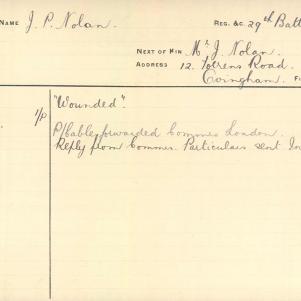 NAME J. P. Nolan. REG. &C. 29th Batt
NEXT OF KIN Mr J. Nolan.
ADDRESS 12. Torrens Road.
Ovingham. F
1/P "Wounded".
P/Cable forwarded Commrs London.
Reply from Commrs. Particulars sent